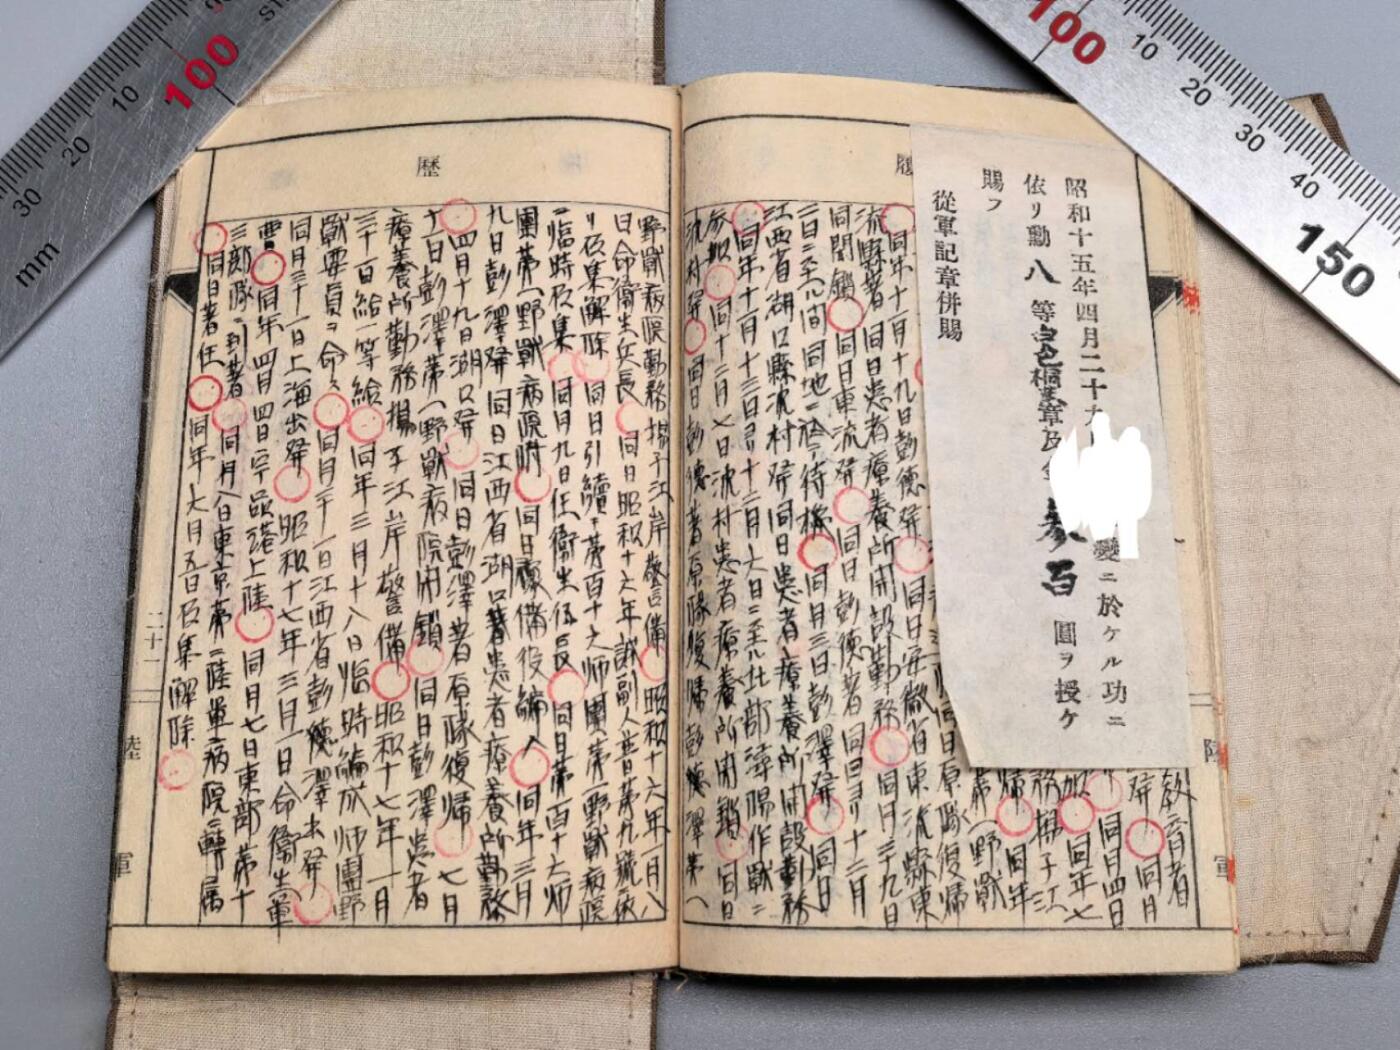 履
昭和十五年四月二十九
變ニ於ケル功ニ
依リ勳八等白色桐葉章及金參百圓ヲ授ケ
賜フ
從軍記章併賜
教育者
發同月
同月四日
加 同年七
務揚子江
歸 同年
第一野戰
同日原隊復歸
同年十一月十九日彭德發 同日安徽省東流縣東
流縣著 同日患者療養所開設勤務 同月三十九日
同閉鎖 同日東流發 同日彭德著 同日ヨリ十二月
二日ニ至ル間同地ニ於テ待機 同月三日彭澤發 同日
江西省湖口縣流村發同日患者療養所開設勤務
同年十一月十三日ヨリ十二月六日ニ至ル北部潯陽作戰ニ
參加 同十二月七日流村患者療養所閉鎖 同日
流村發 同日彭德著原隊復歸彭德澤第一
歷
野戰病院勤務揚子江岸警備 昭和十六年一月八
日命衞生兵長 同日昭和十六年 副人普第九號ニ依
リ召集解除 同日引續キ第百十六師團第一野戰病院
ニ臨時召集 同月九日任衞生伍長 同日第百十六師
團第一野戰病院附 同日豫備役編入 同年三月
九日彭澤發同日江西省湖口著患者療養所勤務
四月十九日湖口發 同日彭澤著原隊復歸 七月
十日彭澤第一野戰病院開鎖 同日彭澤患者
療養所勤務揚子江岸警備 昭和十七年一月
三十日給一等給 同年三月十八日臨時編成師團野
戰要員ヲ命ス 同月三十一日江西省彭德澤出發
同月三十一日上海出發 昭和十七年三月一日命衞生軍
曹 同年四月四日宇品港上陸 同月七日東部第十
三部隊ニ到著 同月八日東京第二陸軍病院ニ轉屬
同日著任 同年六月五日召集解除
二十一
陸
軍
陸
軍
100
10
20
30
mm
100
10
20
30
40
150